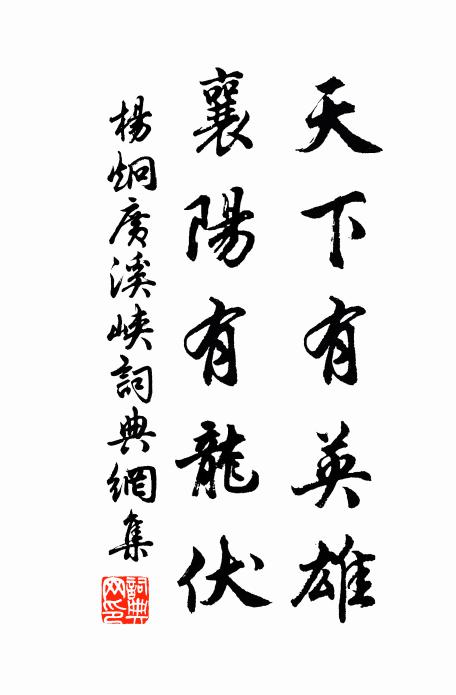 天下有英雄
襄陽有龍伏
楊炯廣溪峽詞典網集
詞典網印